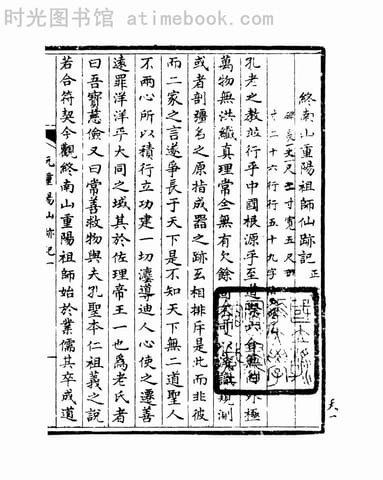 时光图书馆 atimebook.com
終南山重陽祖師仙跡記 正
碑長一丈 尺 寸寬五尺四
寸二十六行行五十九字
孔老之教並行乎中國根源乎至道際六合無內外極
萬物無洪纖真理常全無有欠餘固不可以淺識窺測
或者剖彊名之原指成器之跡互相排斥是此而非彼
而二家之言遂爭長于天下是不知天下無二道聖人
不兩心所以積行立功建一切灋導迪人心使之遷善
遠罪洋洋乎大同之域其於佐理帝王一也爲老氏者
曰吾寶慈儉又曰常善救物與夫孔聖本仁祖義之說
若合符契今觀終南山重陽祖師始於業儒其卒成道
元重陽仙跡記一